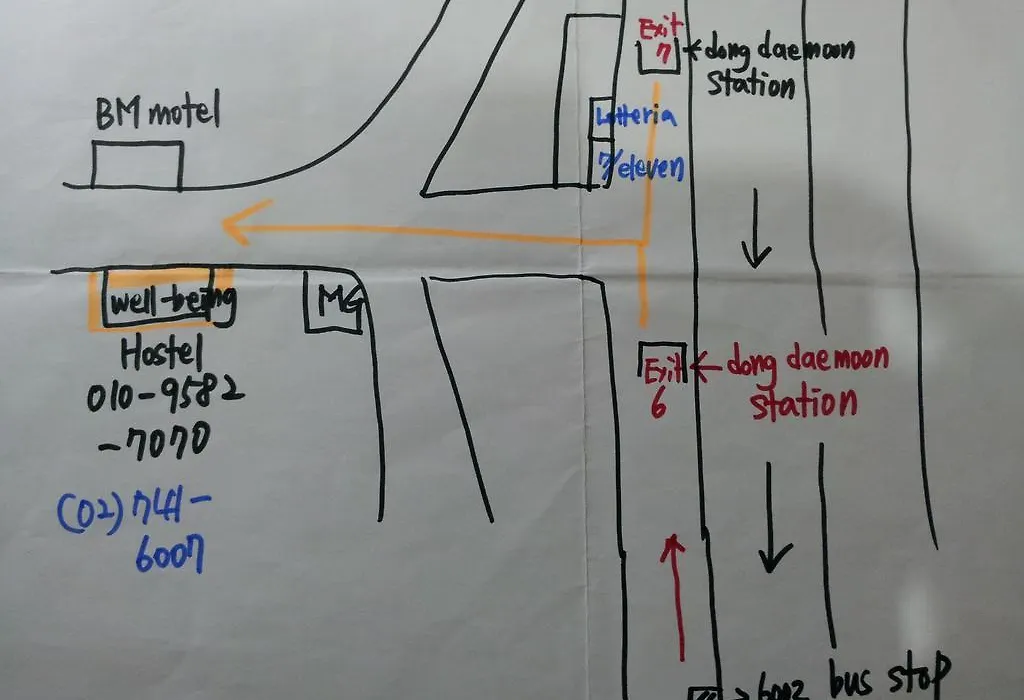 Exit
7
dong daemoon
station
BM motel
Lotteria
7/eleven
well-being
MG
Hostel
010-9582
-7070
Exit
6
dong daemoon
station
(02) 741-
6007
6002 bus stop